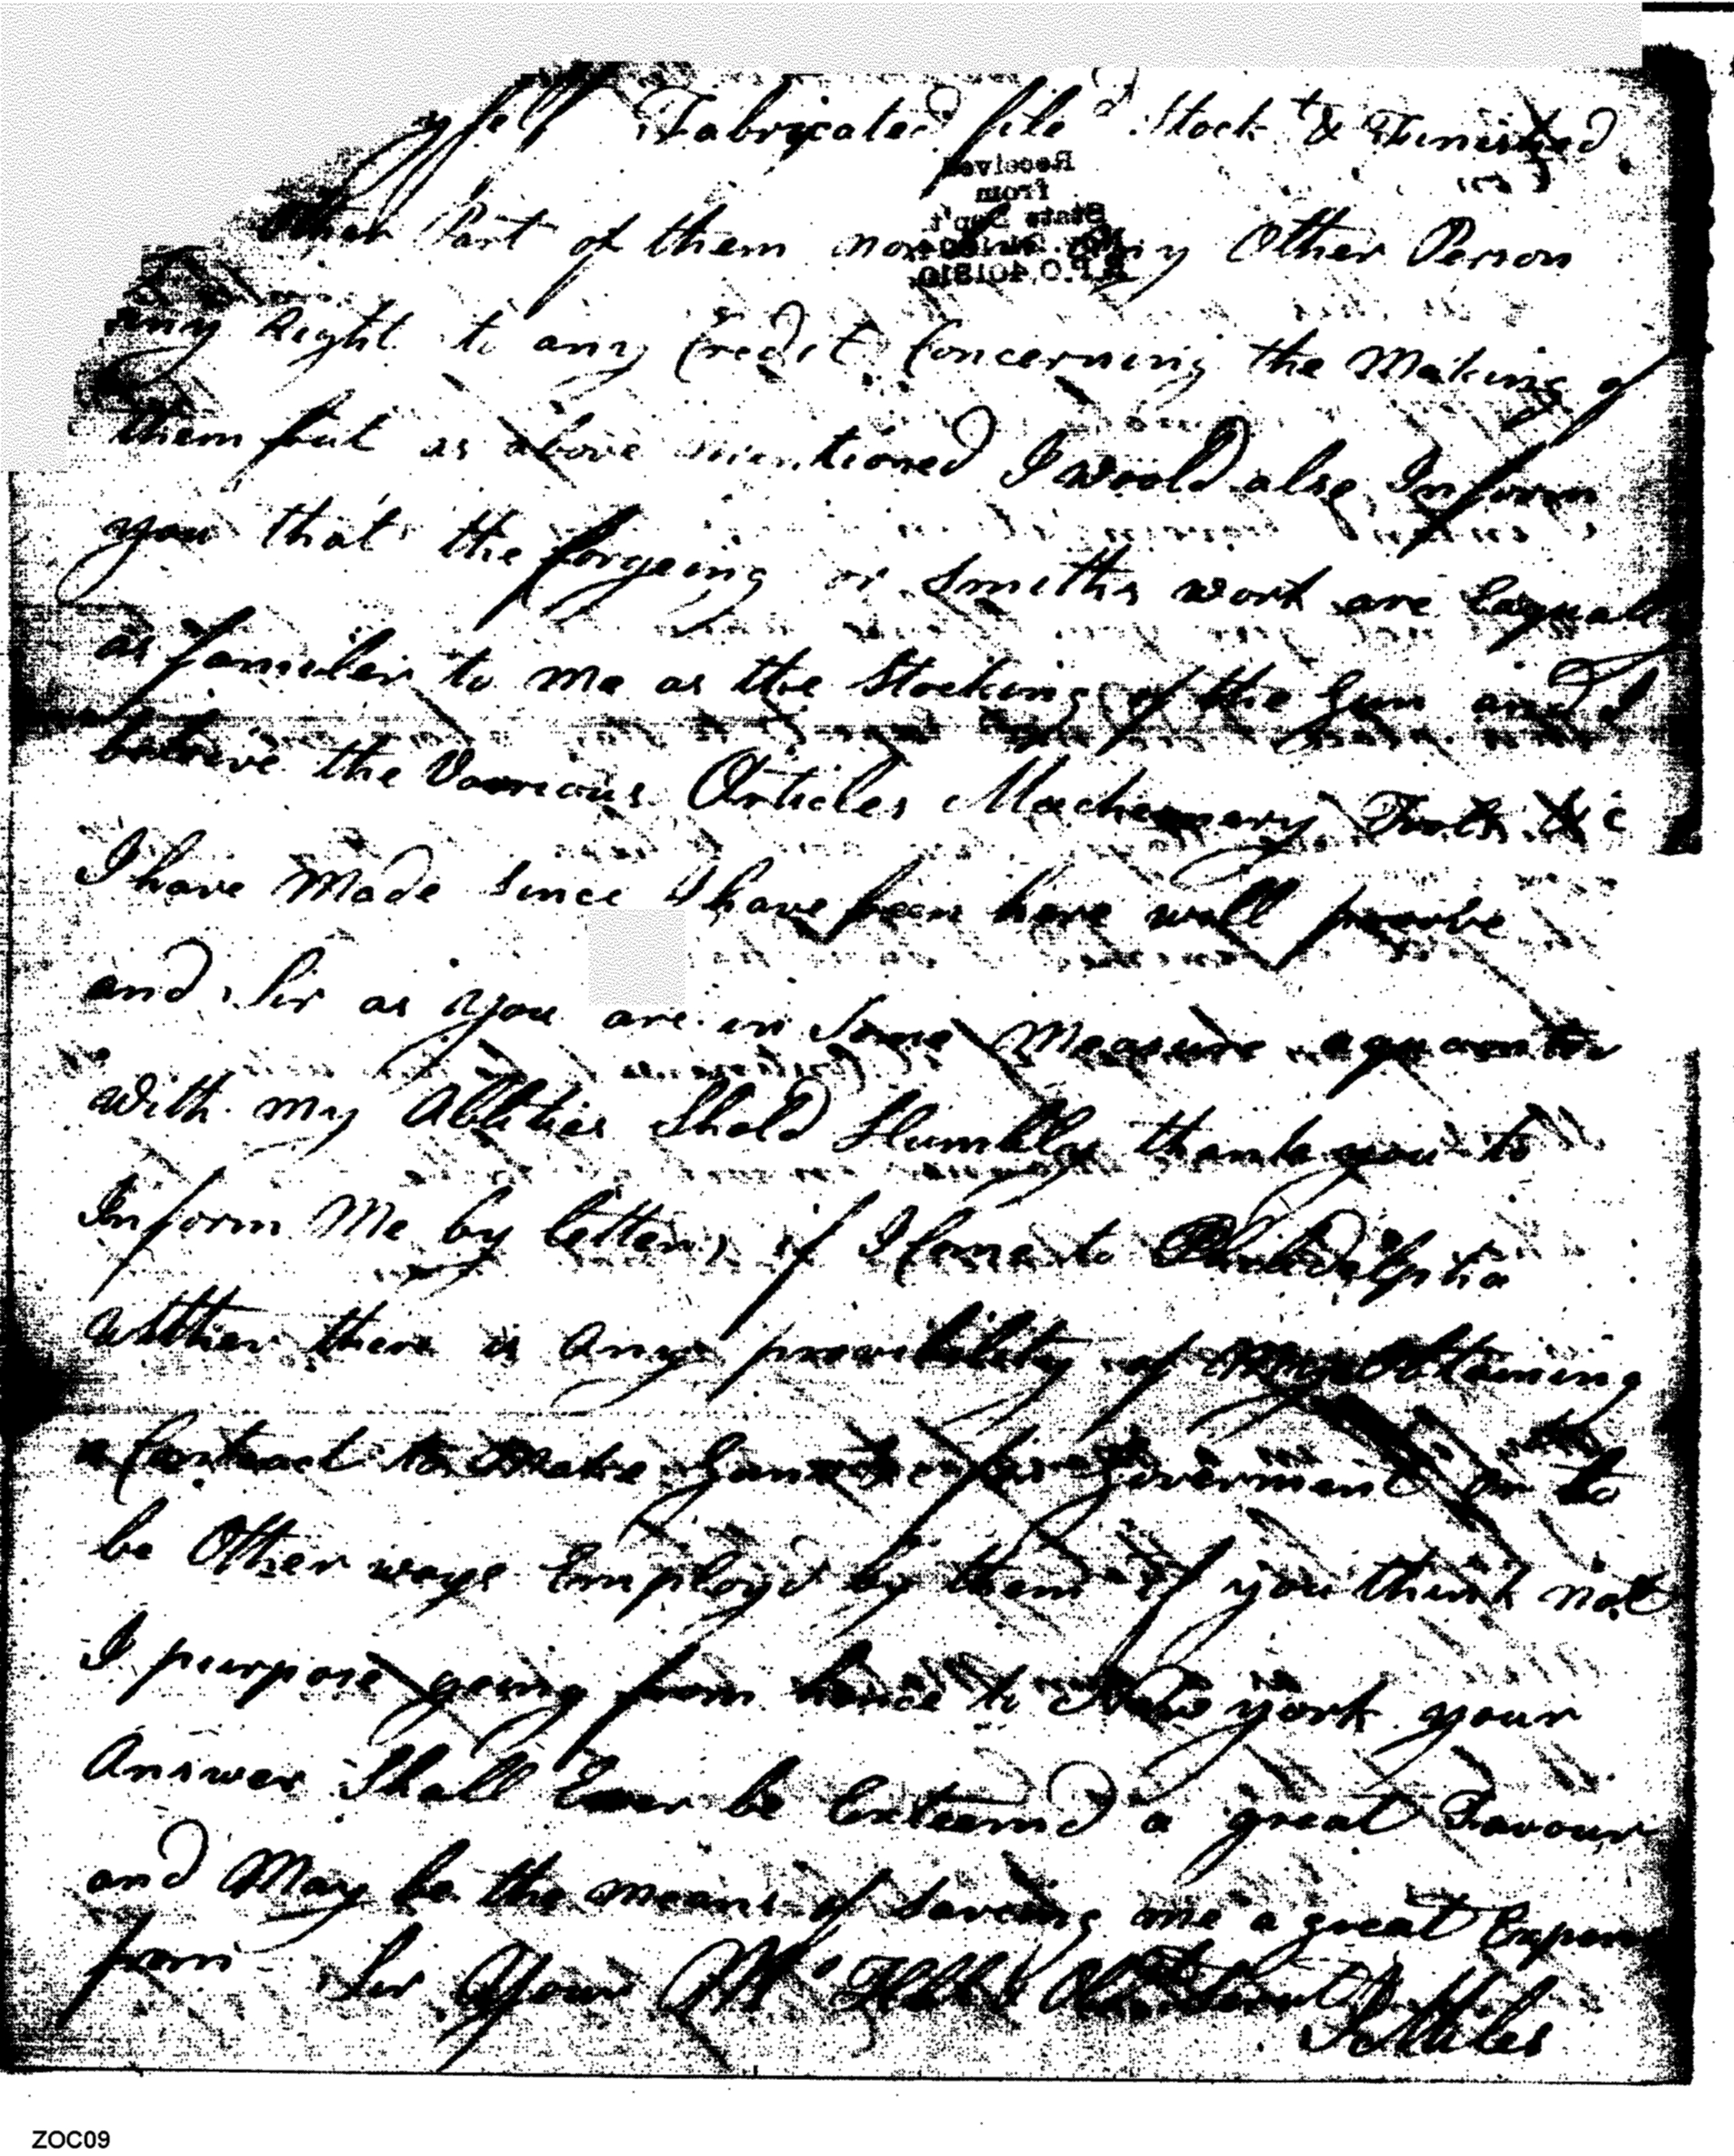 yself Fabricated file'd Stock't & Finished
Other Part of them nor any Other Person
any Right to any Credit Concerning the Making of
them but as above mentioned I woold also Inform
you that the forgeing or Smiths work are Eaqually
as familer to me as the Stocking of the Gun and I
beleive the Vaerious Articles Machenery Tools &c
I have Made since I have been here will proove
and Sir as you are in Some Measure aquainted
with my Ablities Shold Humbly thank you to
Inform Me by letter, if I Come to Philidelphia
wither there is any provibility of My Obtaining
a Contract to Make Guns &c for Goverment or to
be Other ways Employd by them if you think not
I purpose going from hence to New york your
Answer Shall Ever be Esteemd a great Favour
and May be the means of Saveing me a great Expence
from Sir Your Mo Hble Obt Servt
J Miles
Received
from
State Dep't
R.P.O. 401810
ZOC09